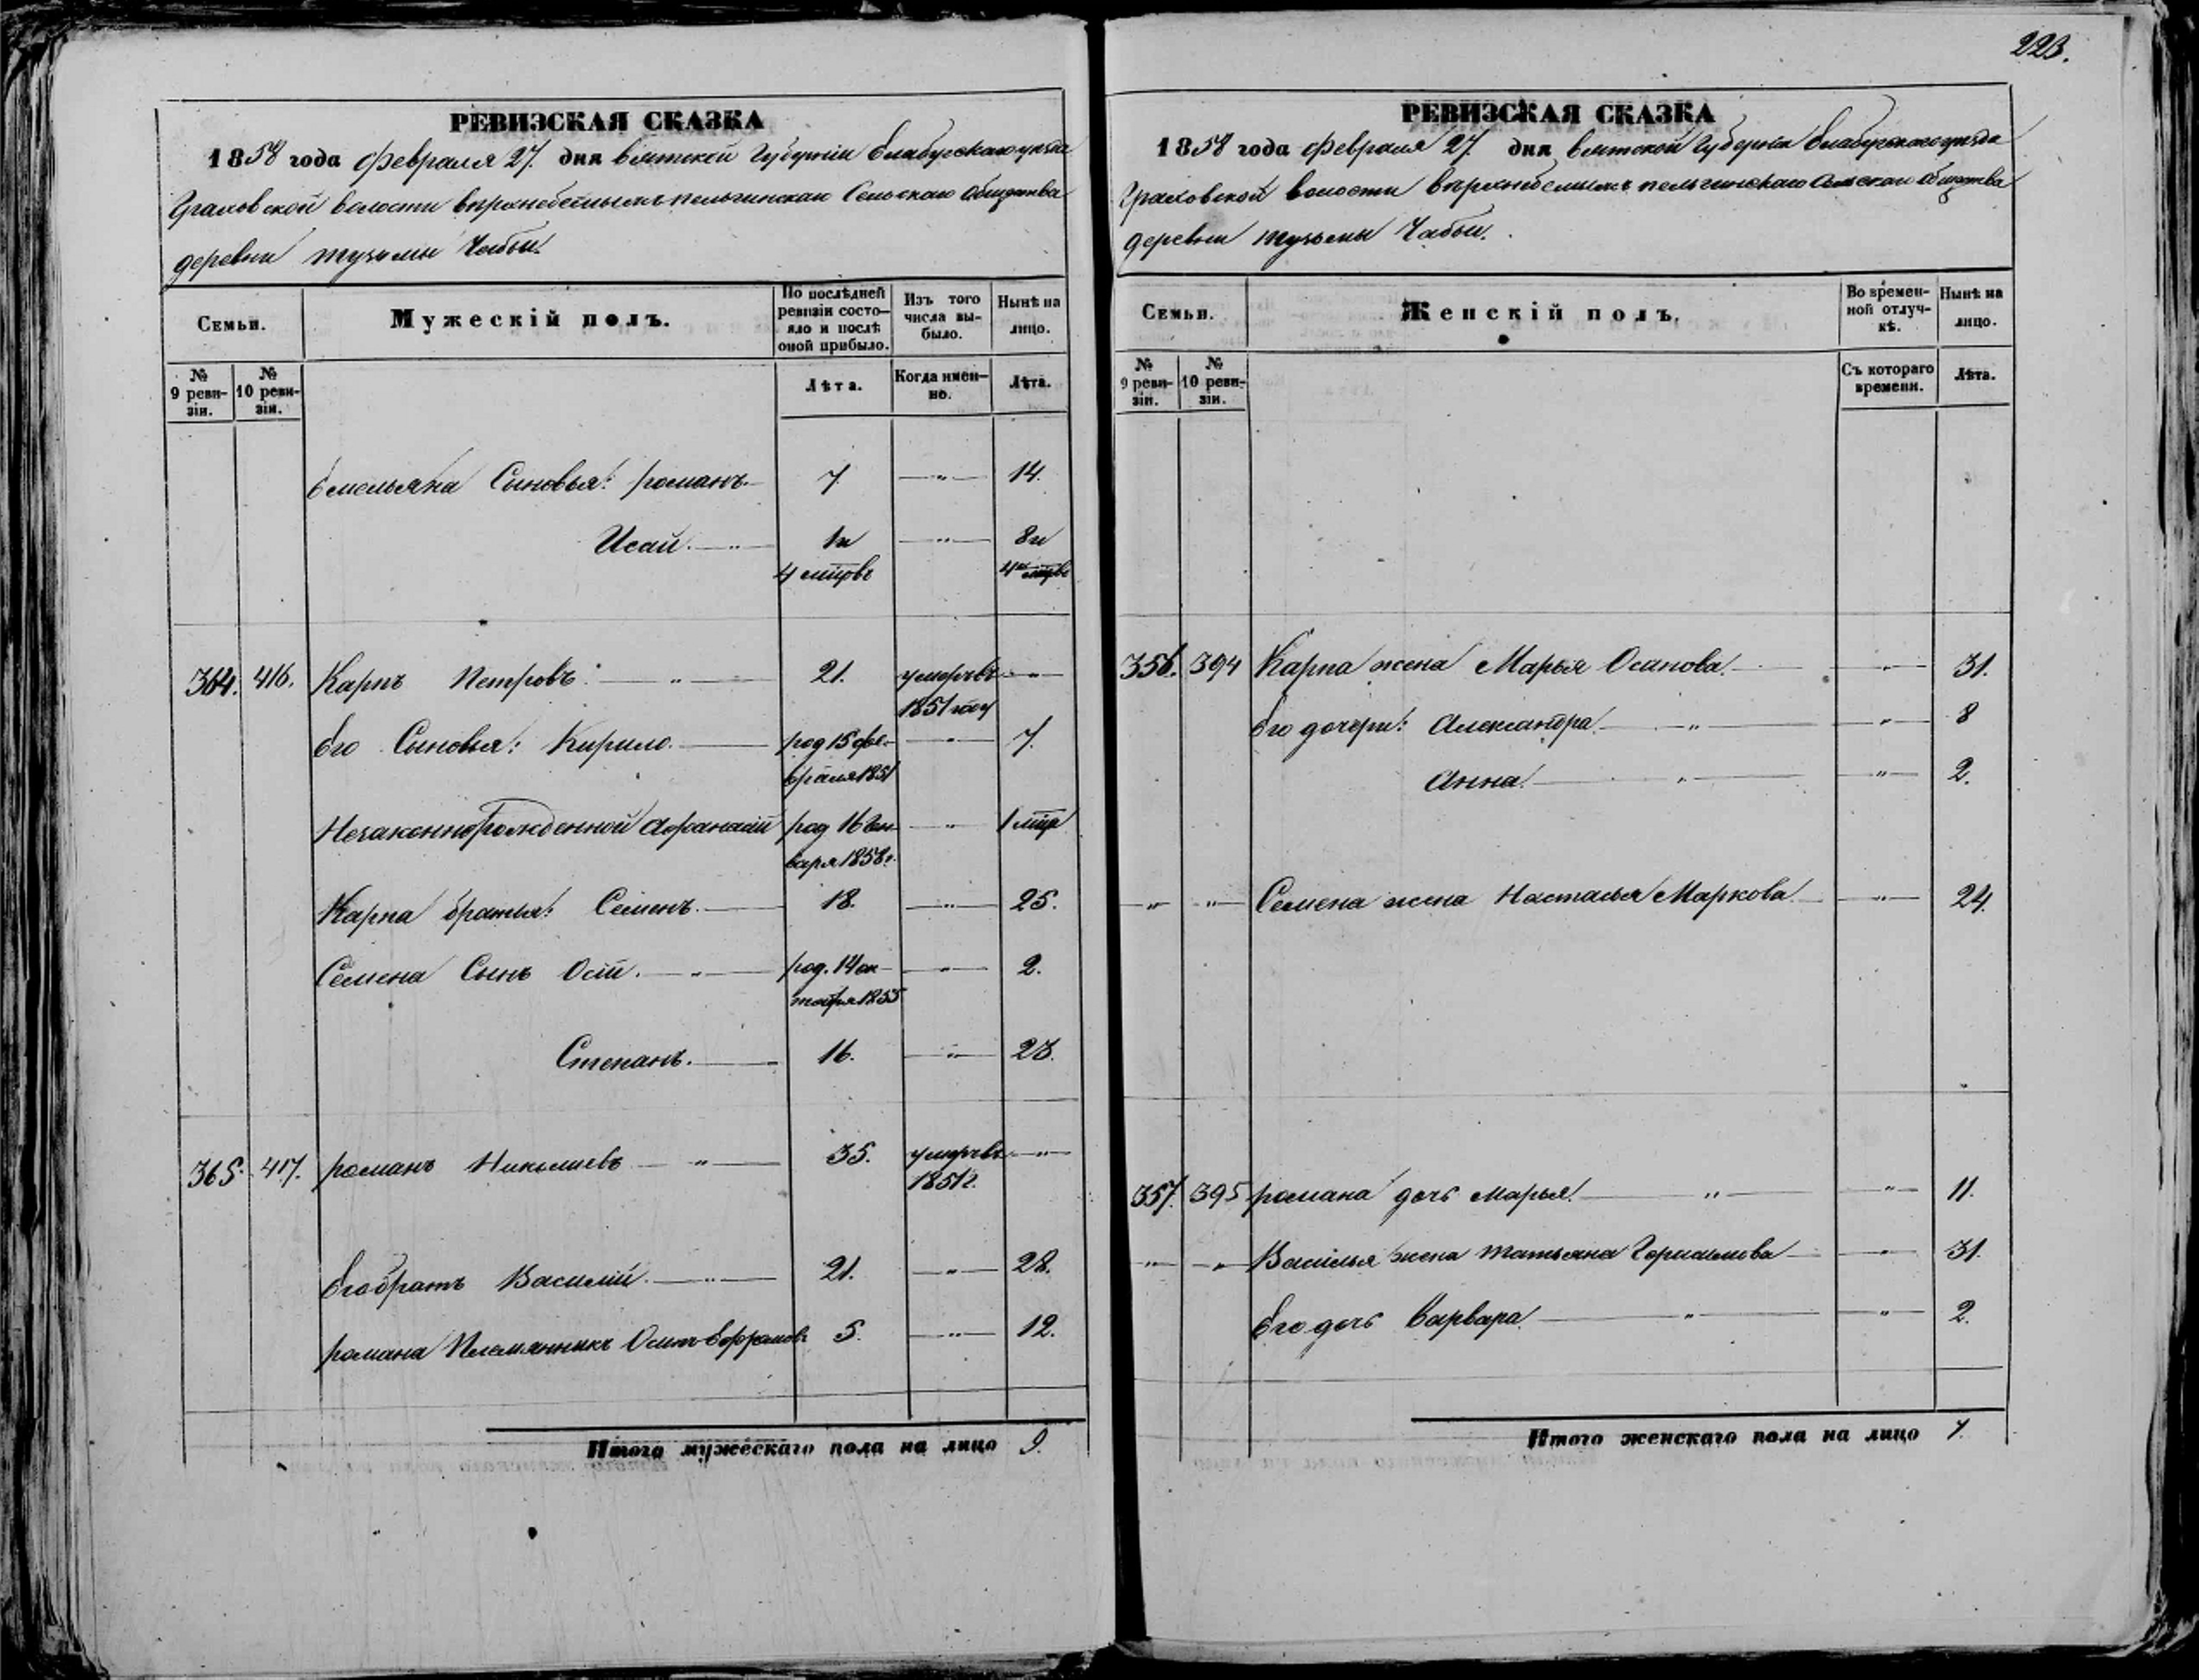 223.
РЕВИЗСКАЯ СКАЗКА
1858 года февраля 27. дня вятской губерніи елабужскаго уѣзда
Граховской волости верхнебемыжъ-пельгинскаго Сельскаго общества
деревни тузьмы Чабьи.
Семьи.
Мужескій полъ.
По послѣдней ревизіи состояло и послѣ оной прибыло.
Изъ того числа выбыло.
Нынѣ на лицо.
№ 9 ревизіи.
№ 10 ревизіи.
Лѣта.
Когда именно.
Лѣта.
емельяна Сыновья: романъ — 7. — " — 14.
Исай. — " — 1и — " — 8и
4 мцовъ 4 мцвъ
364. 416. Карпъ Петровъ. — " — 21. умеръ въ — " —
1851 году
его Сыновья: Кирило. — род 15 фе- — " — 7.
враля 1851
Незаконнорожденной Афанасій род 16 ген- — " — 1 мцъ
варя 1858 г.
Карпа братья: Семенъ. — 18. — " — 25.
Семена Сынъ Осип. — " — род. 14 ок- — " — 2.
тября 1855
Степанъ. — " 16. — " — 23.
365. 417. романъ Николаевъ — " — 35. умеръ въ — " —
1851 г.
его братъ Василій. — " — 21. — " — 28.
романа Племянникъ Осипъ Ефремовъ 5. — " — 12.
Итого мужескаго пола на лицо 9.
РЕВИЗСКАЯ СКАЗКА
1858 года февраля 27. дня вятской губерніи елабужскаго уѣзда
Граховской волости верхнебемыжъ пельгинскаго сельскаго общества
деревни тузьмы Чабьи.
Семьи.
Женскій полъ.
Во временной отлучкѣ.
Нынѣ на лицо.
№ 9 ревизіи.
№ 10 ревизіи.
Съ котораго времени.
Лѣта.
356. 394 Карпа жена Марья Осипова. — " — 31.
его дочери: Александра — " — " — 8
Анна. — " — " — 2.
— " — " — Семена жена Настасья Маркова — " — 24.
357. 395 романа дочь Марья. — " — " — 11.
— " — " — Василья жена татьяна Герасимова — " — 31.
его дочь Варвара. — " — " — 2.
Итого женскаго пола на лицо 7.